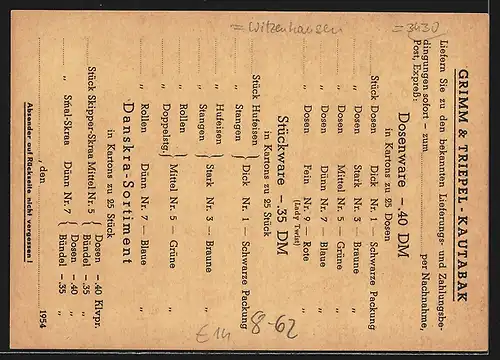 GRIMM & TRIEPEL-KAUTABAK
Liefern Sie zu den bekannten Lieferungs- und Zahlungsbe-
dingungen sofort – zum per Nachnahme,
Post, Expreß:
Dosenware –.40 DM
in Kartons zu 25 Dosen
Stück Dosen Dick Nr. 1 — Schwarze Packung
„ Dosen Stark Nr. 3 — Braune „
„ Dosen Mittel Nr. 5 — Grüne „
„ Dosen Dünn Nr. 7 — Blaue „
„ Dosen Fein Nr. 9 — Rote „
(Lady Twist)
Stückware –.35 DM
in Kartons zu 25 Stück
Stück Hufeisen } Dick Nr. 1 — Schwarze Packung
„ Stangen
„ Hufeisen } Stark Nr. 3 — Braune „
„ Stangen
„ Rollen } Mittel Nr. 5 — Grüne „
„ Doppelstg.
„ Rollen Dünn Nr. 7 — Blaue „
Danskra-Sortiment
in Kartons zu 25 Stück
Stück Skipper-Skraa Mittel Nr. 5 { Dosen –.40 Klvpr.
Bündel –.35 „
„ Smal-Skraa Dünn Nr. 7 { Dosen –.40 „
Bündel –.35 „
, den 1954
Absender auf Rückseite nicht vergessen!
= Witzenhausen
= 3430
£14
8-62